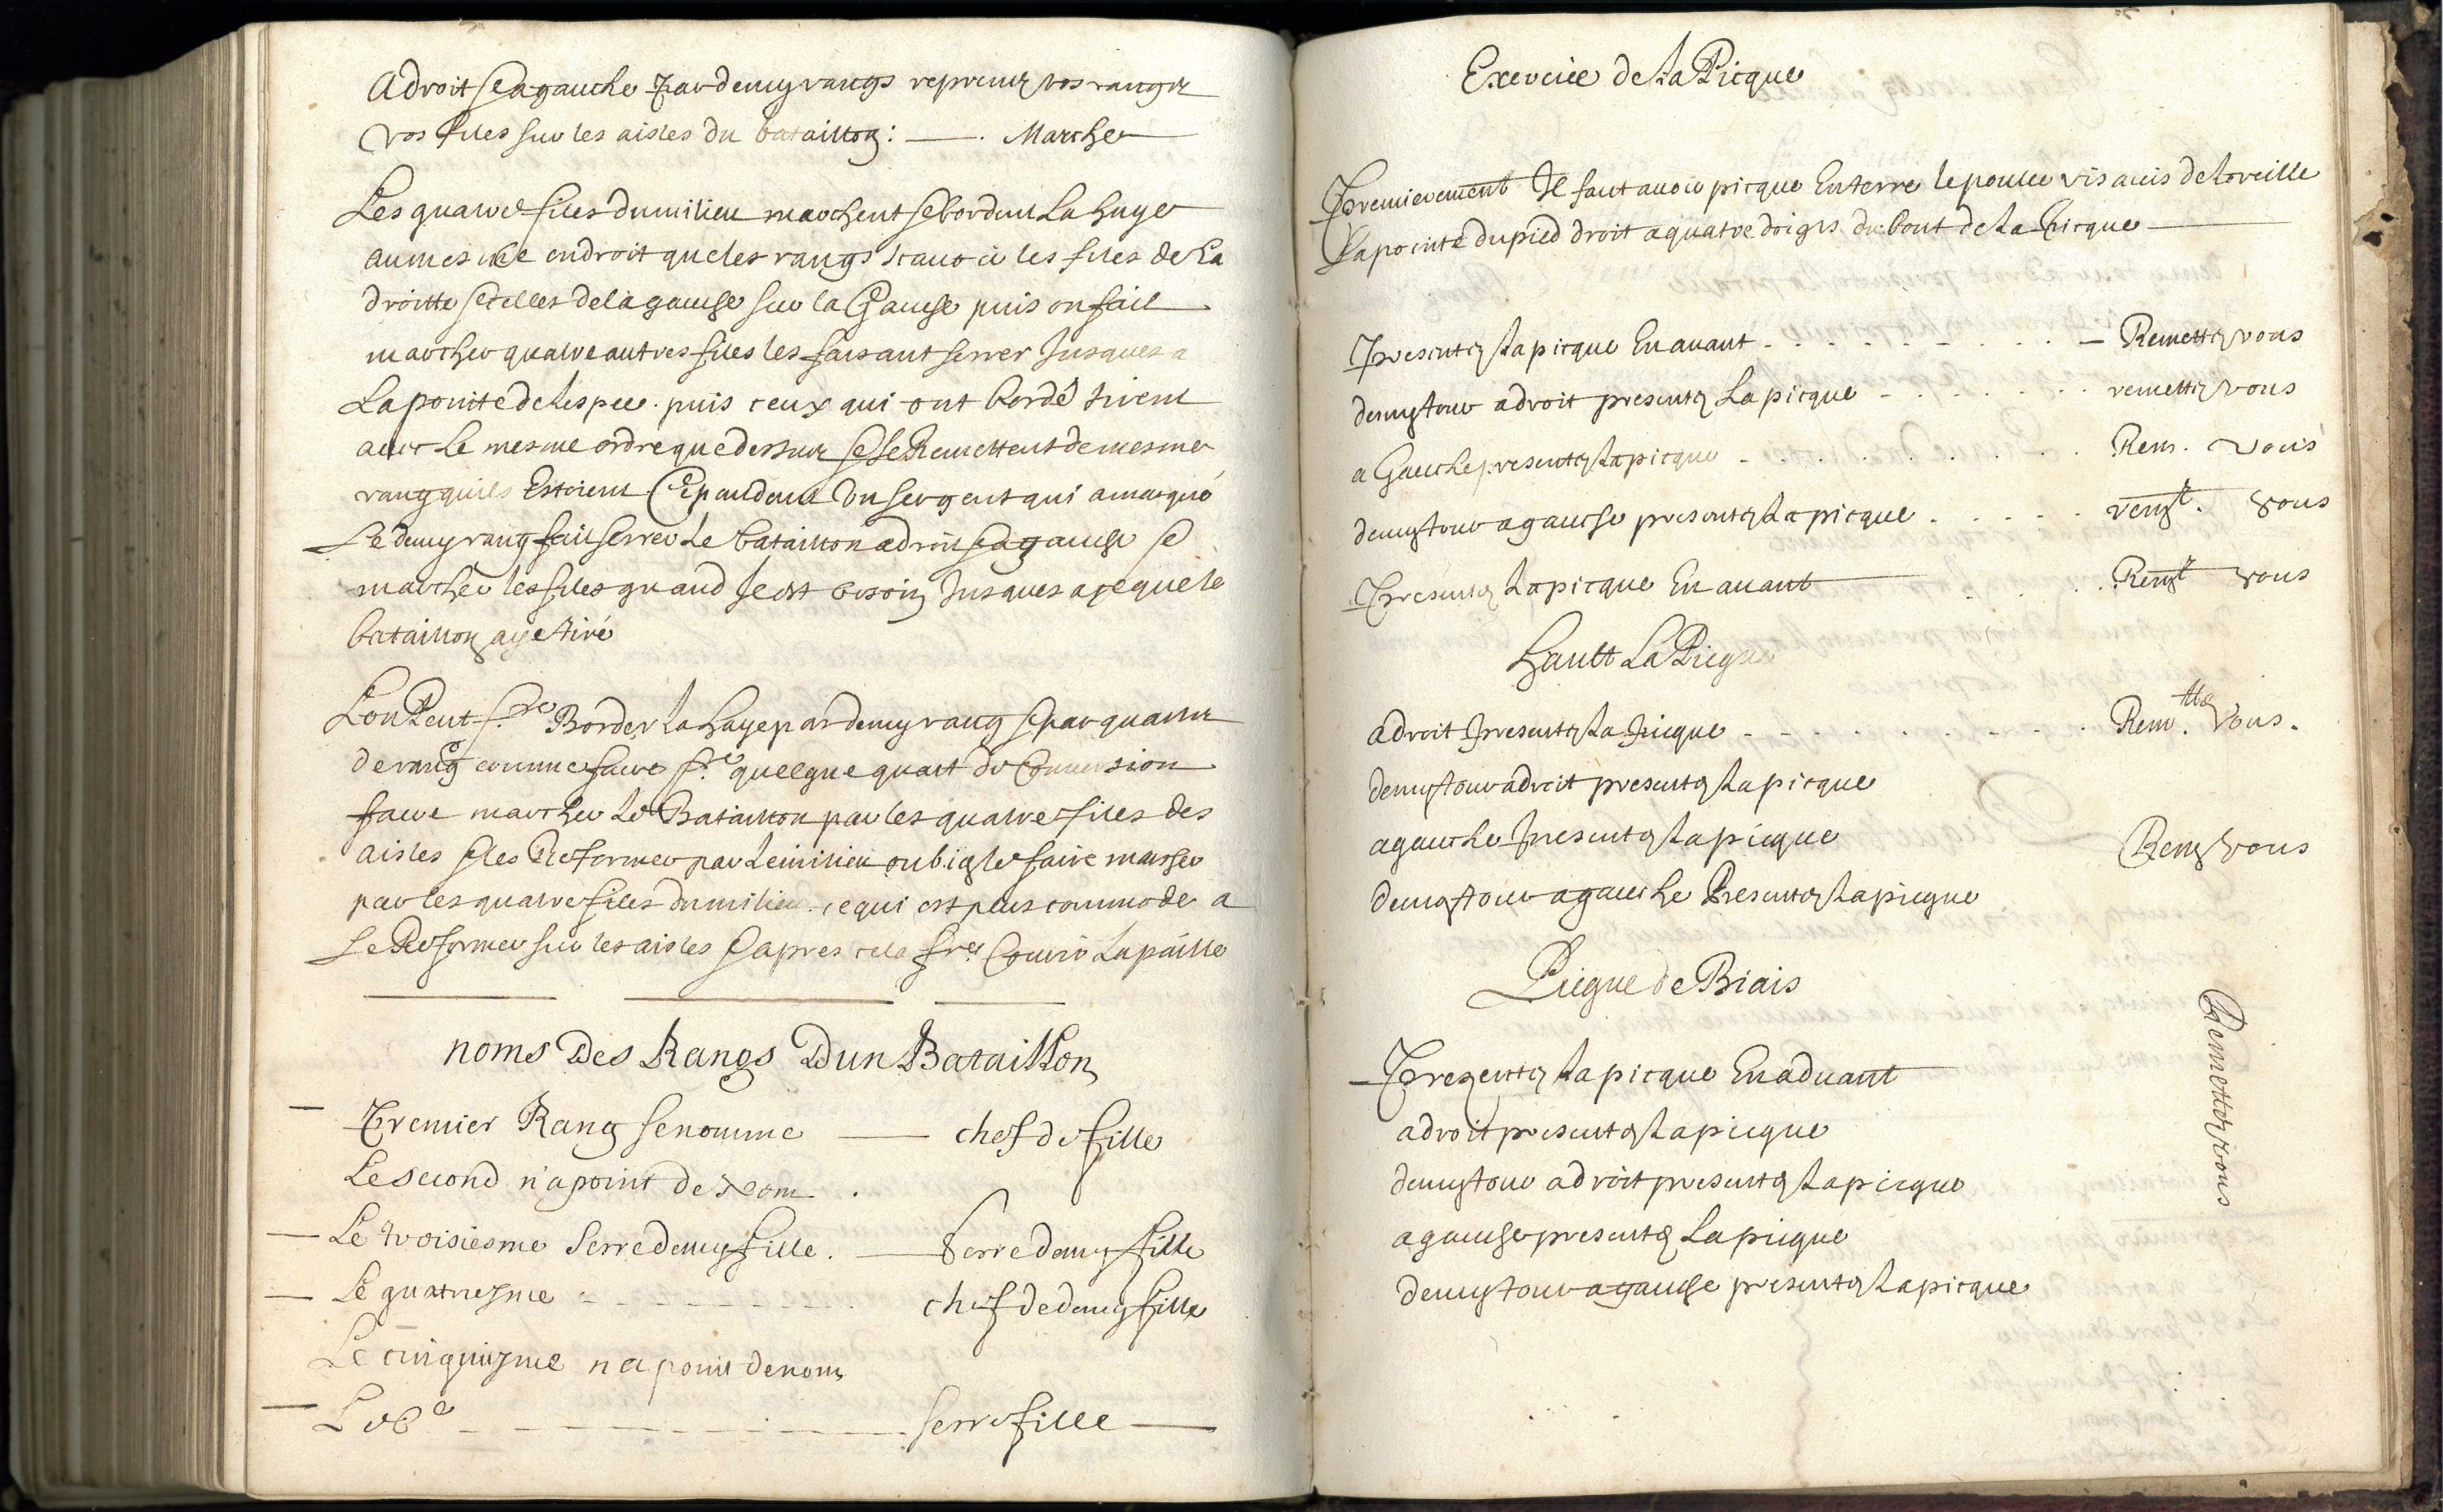 Adroit & agauche Par demy rangs reprenez vos rangs &
vos files sur les aisles du bataillon : —. Marche
Les quatre files du milieu marchent & bordent La haye
au mesme endroit que les rangs scavoir les files de La
droitte & celles de la gauche sur la Gauche puis on fait
marcher quatre autres files les faisant serrer Jusques a
La pointe de Lespee. puis ceux qui ont bordé tirent
avec Le mesme ordre que dessus & se Remettent de mesme
rang quils Estoient Cependant Un sergent qui a marqué
Le demy rang fait serrer Le bataillon adroit & agauche &
marcher les files quand Il est besoing Jusques a ce que le
bataillon aye tiré
Lon Peut f.re Border La haye par demy rang & par quart
de rang comme faire f.re quelque quart de Conversion
faire marcher Le Bataillon par les quatre files des
aisles & les Reformer par Le milieu ou bien le faire marcher
par les quatre files du milieu. ce qui est plus commode a
Le Reformer sur les aisles & apres cela f.re Courir La paille
noms Des Rangs Dun Bataillon
— Premier Rang se nomme — chef de fille
Le second n'a point de Nom .
— Le troisiesme Serre demy fille. — Serre demy fille
— Le quatriesme - - - - - - - - chef de demy fille
Le cinquiesme n a point de nom
— Le 6e - - - - - - - - - serre fille —
Exercice de La Picque
Premierement Il faut avoir picque En terre le poulce vis avis de Loreille
La pointe du pied droit a quatre doigts du bout de La Picque —
Presentez La picque En avant - . . . . . . . . . - Remettez vous
demy tour adroit presentez La picque - . . . . . . remettez vous
a Gauche presentez La picque - . . . . . . . . . Rem. vous
demy tour agauche presentez La picque . . . . . rem.t vous
Presentez La picque En avant — . . . . Rem.t vous
Hault La Picque
adroit Presentez La Picque - - . . . . . . . . . Rem.ttez Vous.
demy tour adroit presentez La picque
agauche Presentez La picque Remz vous
demy tour agauche Presentez La picque
Picque de Biais
— Prezentez La picque En advant
adroit presentez La picque
demy tour adroit presentez La picque
agauche presentez La picque
demy tour agauche presentez La picque
Remettez vous